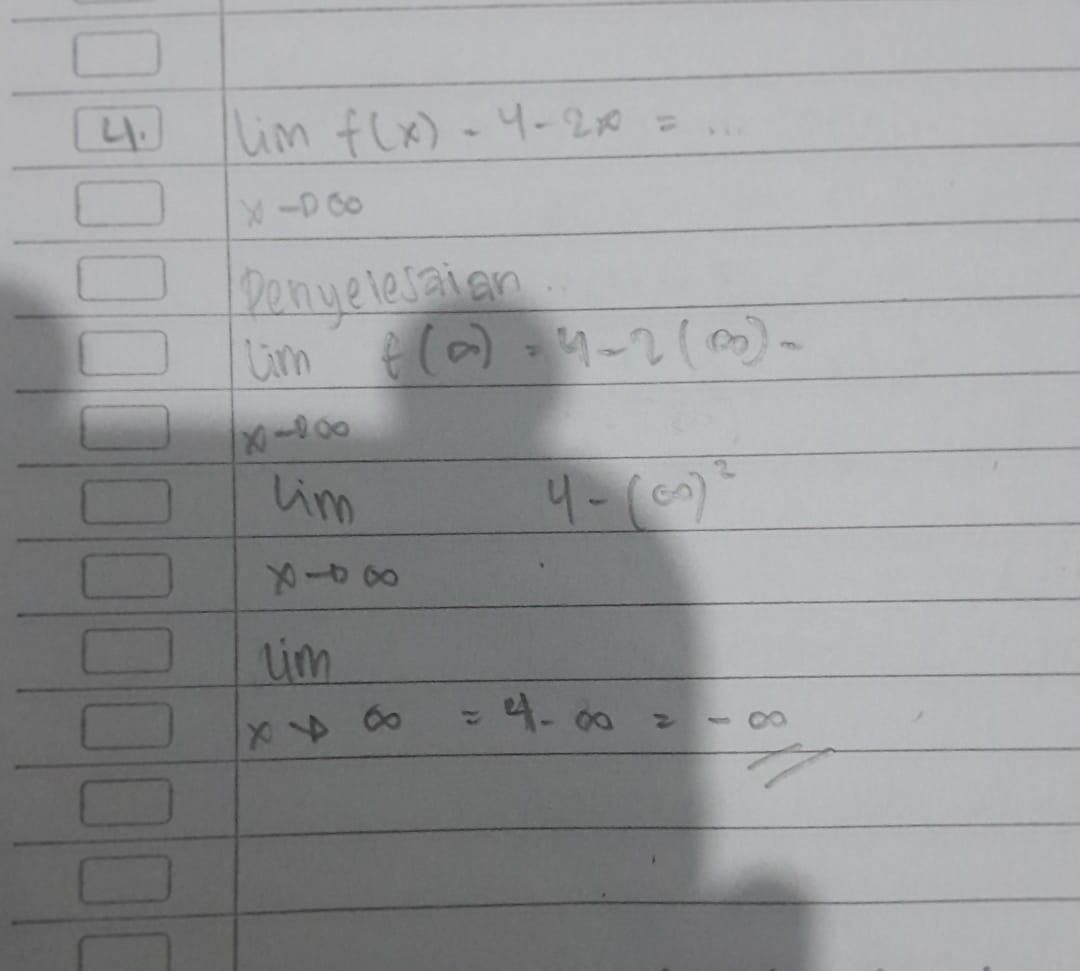 4. lim f(x) - 4 - 2x = ...
x→∞
Penyelesaian..
lim f(∞) = 4 - 2(∞) -
x→∞
lim 4 - (∞)²
x→∞
lim
x→∞ = 4 - ∞ = -∞